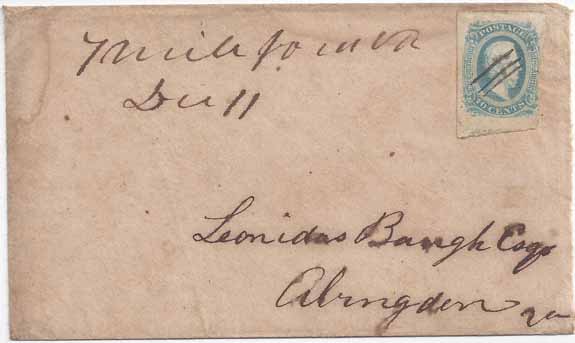 7 Mile Ford Va
Dec 11
POSTAGE
TEN CENTS
Leonidas Baugh Esqr
Abingdon Va